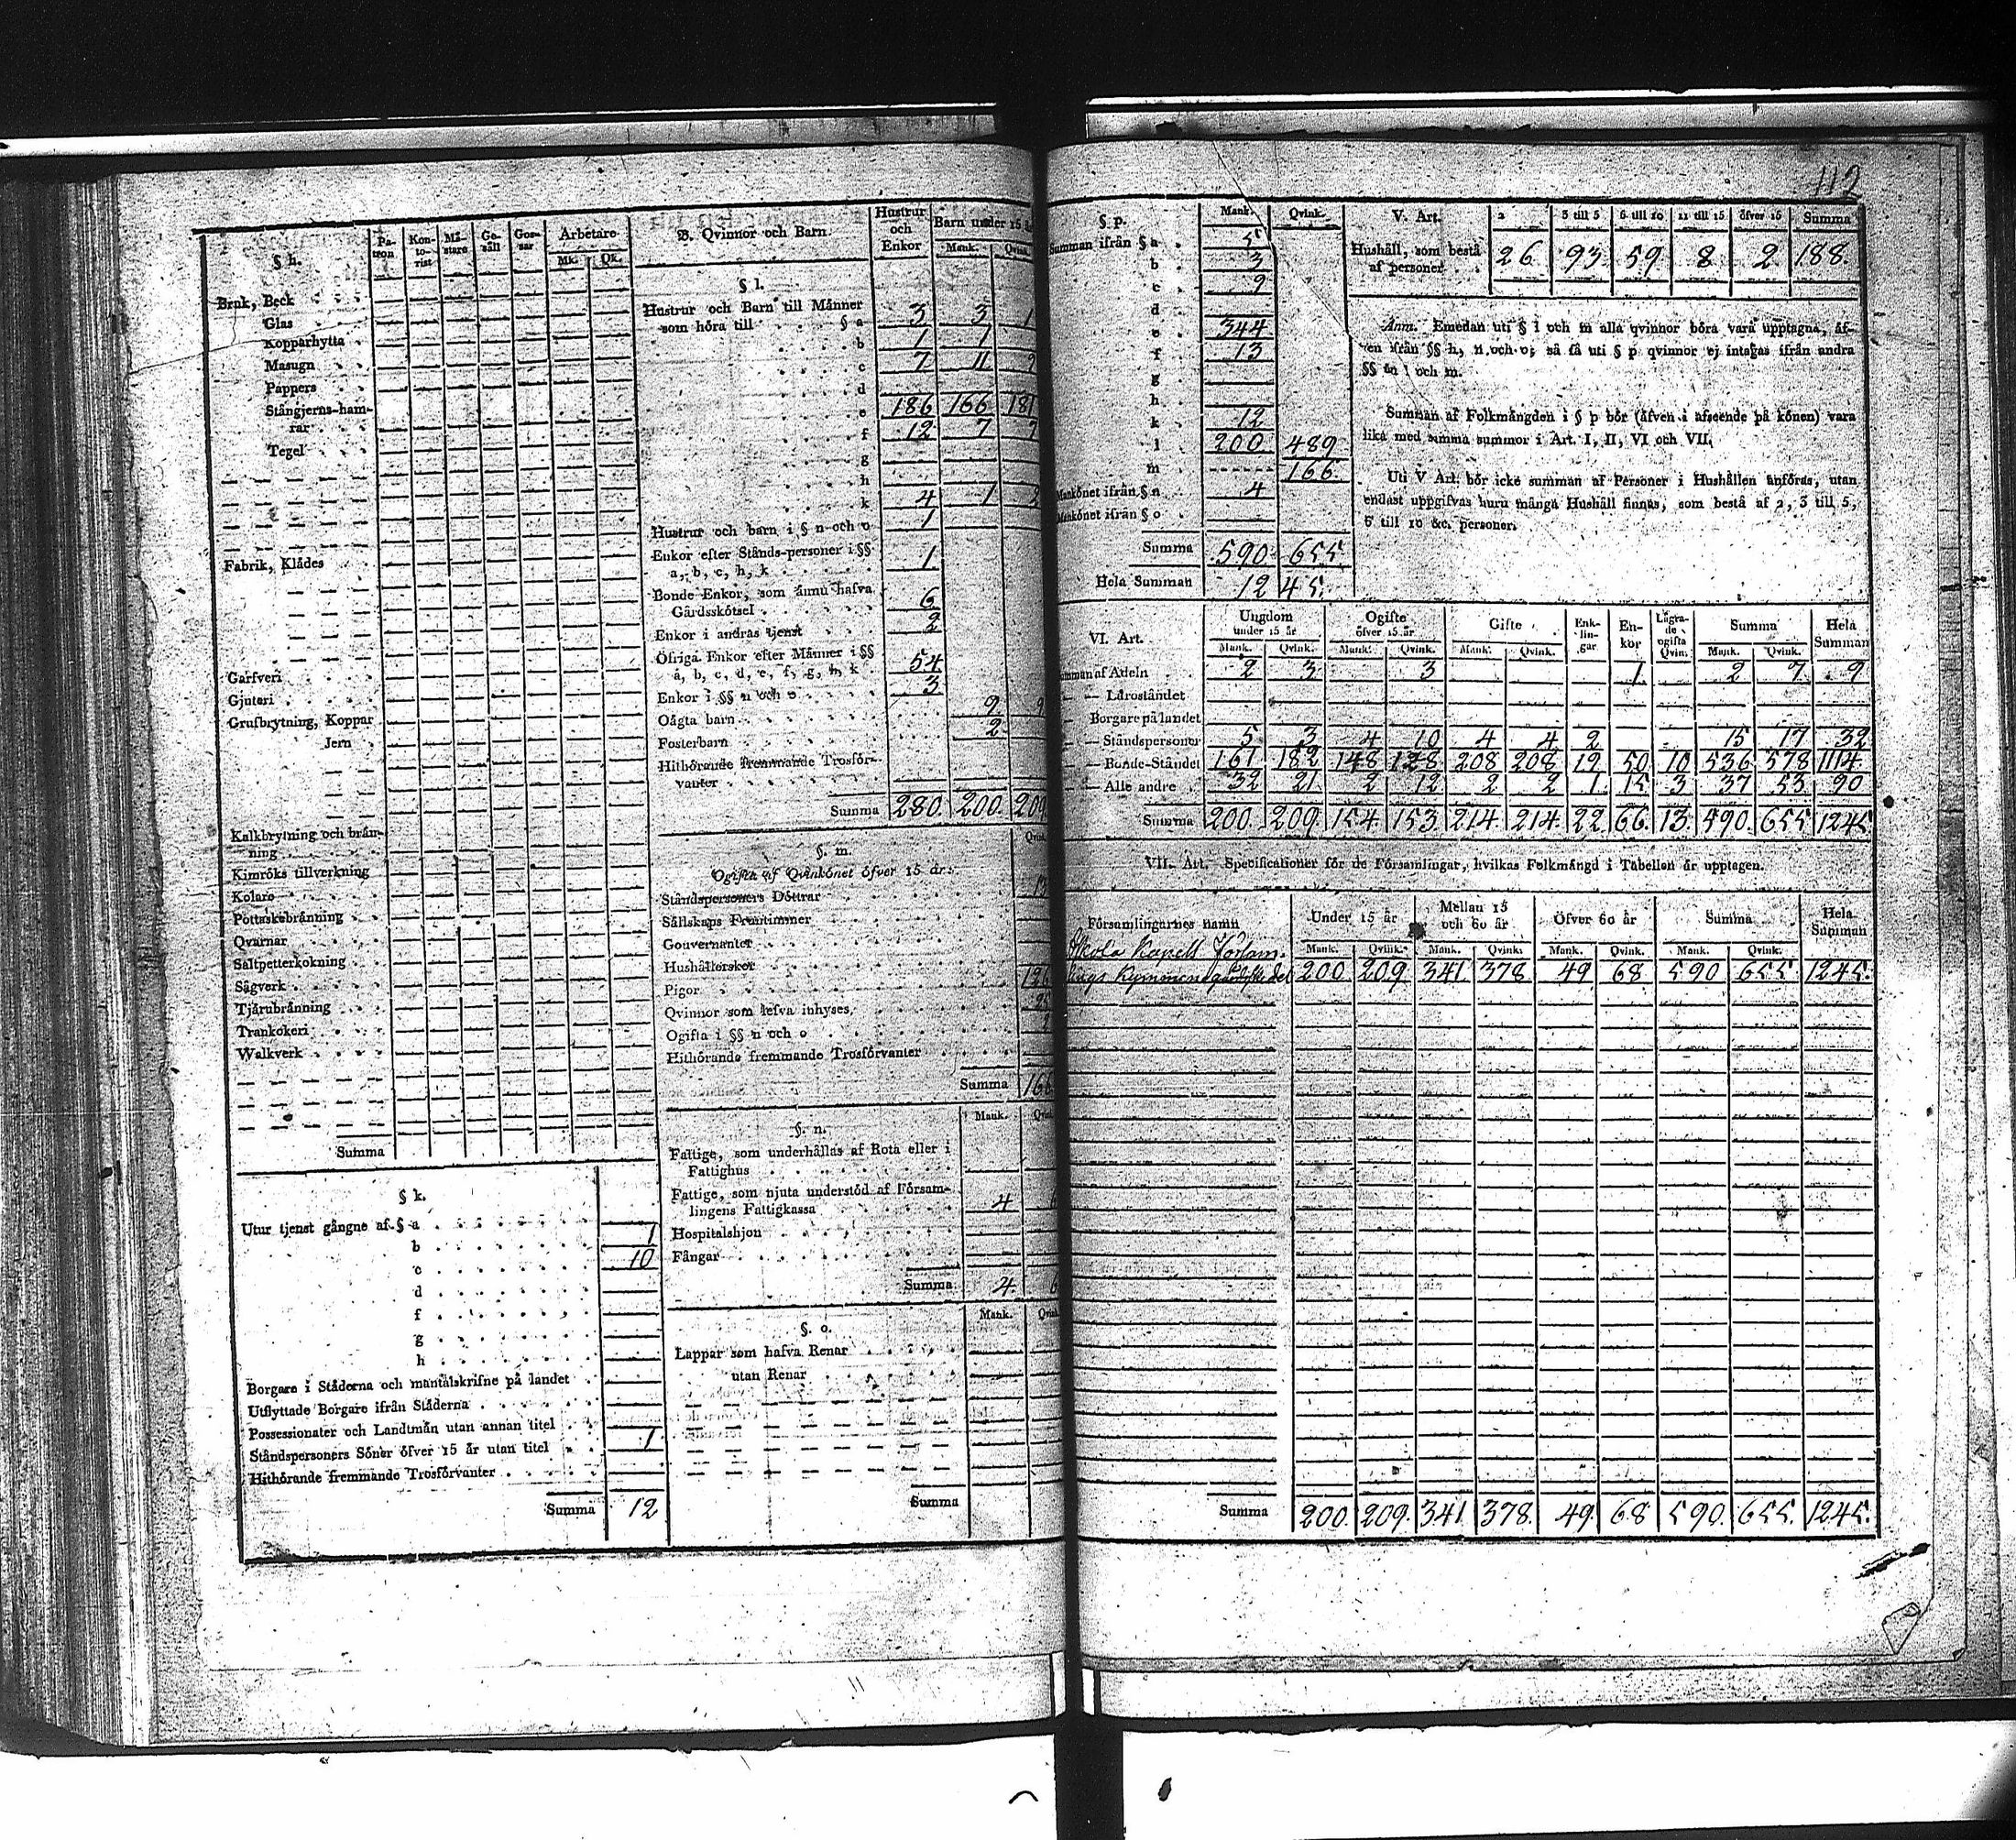 § h.
Pa-tron Kon-to-rist Mä-stare Ge-säll Gos-sar Arbetare
Mk. Qk.
Bruk, Beck
Glas
Kopparhytta
Masugn
Pappers
Stångjerns-ham-
rar
Tegel
Fabrik, Klädes
Garfveri
Gjuteri
Grufbrytning, Koppar
Jern
Kalkbrytning och brän-
ning
Kimröks tillverkning
Kolare
Pottaskebränning
Qvarnar
Saltpetterkokning
Sågverk
Tjärubränning
Trankokeri
Walkverk
Summa
§ k.
Utur tjenst gångne af § a
b 1
c 10
d
f
g
h
Borgare i Städerna och mantalskrifne på landet
Utflyttade Borgare ifrån Städerna
Possessionater och Landtmän utan annan titel
Ståndspersoners Söner öfver 15 år utan titel 1
Hithörande fremmande Trosförvanter
Summa 12
B. Qvinnor och Barn.
Hustrur och Enkor
Barn under 15
Mank. Qvink.
§ l.
Hustrur och Barn till Männer
som höra till § a 3 3 1
b 1 1
c 7 11
d
e 186 166 181
f 12 7 7
g
h
k 4 1 2
Hustrur och barn i § n och o 1
Enkor efter Stånds-personer i §§
a, b, c, h, k 1
Bonde Enkor, som ännu hafva
Gårdsskötsel 6
Enkor i andras tjenst 2
Öfriga Enkor efter Männer i §§
a, b, c, d, e, f, g, h, k 54
Enkor i §§ n och o 3
Oägta barn 9 9
Fosterbarn 2
Hithörande fremmande Trosför-
vanter
Summa 280. 200. 209
§. m.
Ogifta af Qvinkönet öfver 15 år:
Ståndspersoners Döttrar 13
Sällskaps Fruntimmer
Gouvernanter
Hushållerskor
Pigor 126
Qvinnor som lefva inhyses,
Ogifta i §§ n och o
Hithörande fremmande Trosförvanter
Summa 166
§. n.
Mank.
Fattige, som underhållas af Rota eller i
Fattighus
Fattige, som njuta understöd af Försam-
lingens Fattigkassa 4 6
Hospitalshjon
Fångar
Summa 4. 6
§. o.
Mank.
Lappar som hafva Renar
utan Renar
Summa
112
§ p.
Mank. Qvink.
Summan ifrån § a 5
b 3
c 9
d
e 344
f 13
g
h
k 12
l 200 489
m 166.
Mankönet ifrån § n 4
Mankönet ifrån § o
Summa 590. 655
Hela Summan 1245.
V. Art. 2 3 till 5 6 till 10 11 till 15 öfver 15 Summa
Hushåll, som bestå
af personer 26 93 59 8 2 188.
Anm. Emedan uti § l och m alla qvinnor böra vara upptagna, äf-
ven ifrån §§ h, n och o; så få uti § p qvinnor ej intagas ifrån andra
§§ än l och m.
Summan af Folkmängden i § p bör (äfven i afseende på könen) vara
lika med summa summor i Art. I, II, VI och VII.
Uti V Art. bör icke summan af Personer i Hushållen anföras, utan
endast uppgifvas huru många Hushåll finnas, som bestå af 2, 3 till 5,
6 till 10 &c. personer.
VI. Art.
Ungdom under 15 år Ogifte öfver 15 år Gifte Enk-lin-gar En-kor Lägra-de ogifta Qvin. Summa Hela Summan
Mank. Qvink. Mank. Qvink. Mank. Qvink. Mank. Qvink.
Summan af Adeln 2 3 3 1 2 7 9
— Läroståndet
— Borgare på landet
— Ståndspersoner 5 3 4 10 4 4 2 15 17 32
— Bonde-Ståndet 161 182 148 128 208 208 19 50 10 536 578 1114
— Alle andre 32 21 2 12 2 2 1 15 3 37 53 90
Summa 200. 209. 154. 153. 214. 214. 22. 66. 13. 590. 655 1245
VII. Art. Specificationer för de Församlingar, hvilkas Folkmängd i Tabellen är upptagen.
Församlingarnes namn Under 15 år Mellan 15 och 60 år Öfver 60 år Summa Hela Summan
Mank. Qvink. Mank. Qvink. Mank. Qvink. Mank. Qvink.
Kapells Försam.
Kymmene 200 209 341 378 49 68 590 655 1245.
Summa 200. 209. 341. 378. 49. 68 590. 655. 1245.